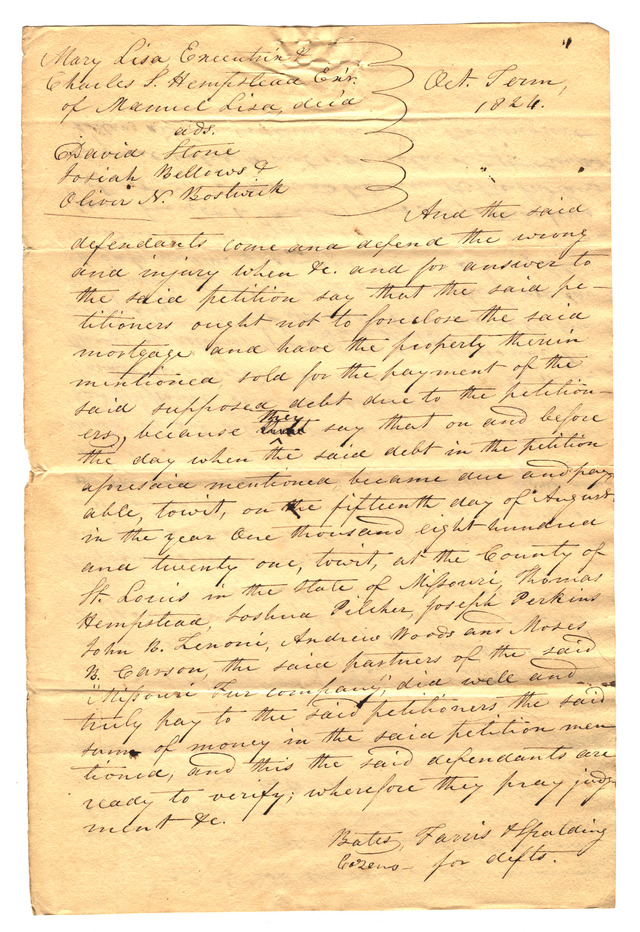 Mary Lisa Executrix &
Charles S. Hempstead Exr.
of Manuel Lisa, dec'd
ads.
David Stone
Josiah Bellows &
Oliver N. Bostwick
Oct. Term,
1824.
And the said
defendants come and defend the wrong
and injury when &c. and for answer to
the said petition say that the said pe-
titioners ought not to foreclose the said
mortgage and have the property therein
mentioned sold for the payment of the
said supposed debt due to the petition-
ers, because they say that on and before
the day when the said debt in the petition
aforesaid mentioned became due and pay
able, towit, on the fifteenth day of August
in the year One thousand eight hundred
and twenty one, towit, at the County of
St. Louis in the State of Missouri, Thomas
Hempstead, Joshua Pilcher, Joseph Perkins
John B. Zenoni, Andrew Woods and Moses
B. Carson, the said partners of the said
"Missouri Fur company", did well and
truly pay to the said petitioners the said
sum of money in the said petition men
tioned, and this the said defendants are
ready to verify; wherefore they pray judg
ment &c.
Bates, Farris & Spalding
for defts.